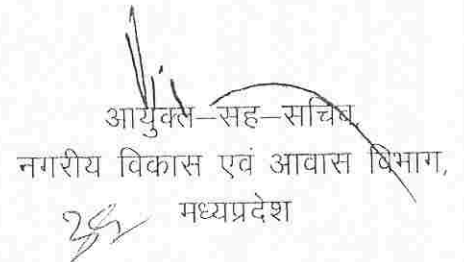 आयुक्त–सह–सचिव,
नगरीय विकास एवं आवास विभाग,
मध्यप्रदेश